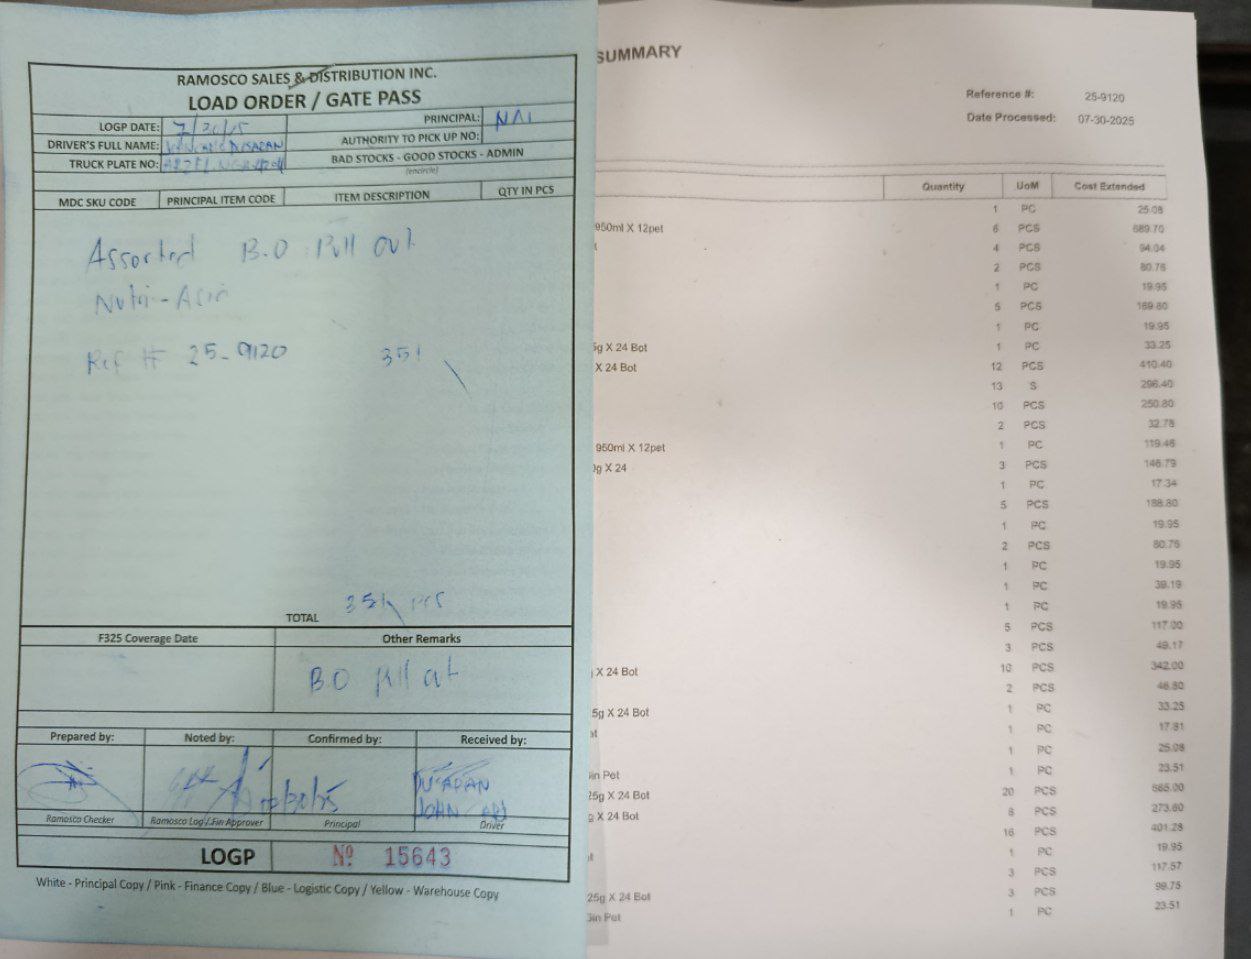 RAMOSCO SALES & DISTRIBUTION INC.
LOAD ORDER / GATE PASS
LOGP DATE:
PRINCIPAL: NAI
DRIVER'S FULL NAME:
AUTHORITY TO PICK UP NO:
TRUCK PLATE NO:
BAD STOCKS - GOOD STOCKS - ADMIN
(encircle)
MDC SKU CODE PRINCIPAL ITEM CODE ITEM DESCRIPTION QTY IN PCS
Assorted B.O Pull out
Nutri-Asia
Ref # 25-9120 351
TOTAL 351 pcs
F325 Coverage Date Other Remarks
BO pull out
Prepared by: Noted by: Confirmed by: Received by:
DUSARAN
JOHN
Ramosco Checker Ramosco Log / Fin Approver Principal Driver
LOGP Nº 15643
White - Principal Copy / Pink - Finance Copy / Blue - Logistic Copy / Yellow - Warehouse Copy
SUMMARY
Reference #: 25-9120
Date Processed: 07-30-2025
Quantity UoM Cost Extended
1 PC 25.08
950ml X 12pet 6 PCS 689.70
4 PCS 94.04
2 PCS 80.76
1 PC 19.95
5 PCS 169.80
1 PC 19.95
5g X 24 Bot 1 PC 33.25
X 24 Bot 12 PCS 410.40
13 S 296.40
10 PCS 250.80
2 PCS 32.78
950ml X 12pet 1 PC 119.46
0g X 24 3 PCS 146.79
1 PC 17.34
5 PCS 188.80
1 PC 19.95
2 PCS 80.76
1 PC 19.95
1 PC 39.19
1 PC 19.95
5 PCS 117.00
3 PCS 49.17
X 24 Bot 10 PCS 342.00
2 PCS 46.80
5g X 24 Bot 1 PC 33.25
1 PC 17.81
1 PC 25.08
Gin Pet 1 PC 23.51
25g X 24 Bot 20 PCS 665.00
g X 24 Bot 8 PCS 273.60
16 PCS 401.28
1 PC 19.95
3 PCS 117.57
25g X 24 Bot 3 PCS 99.75
Gin Pet 1 PC 23.51